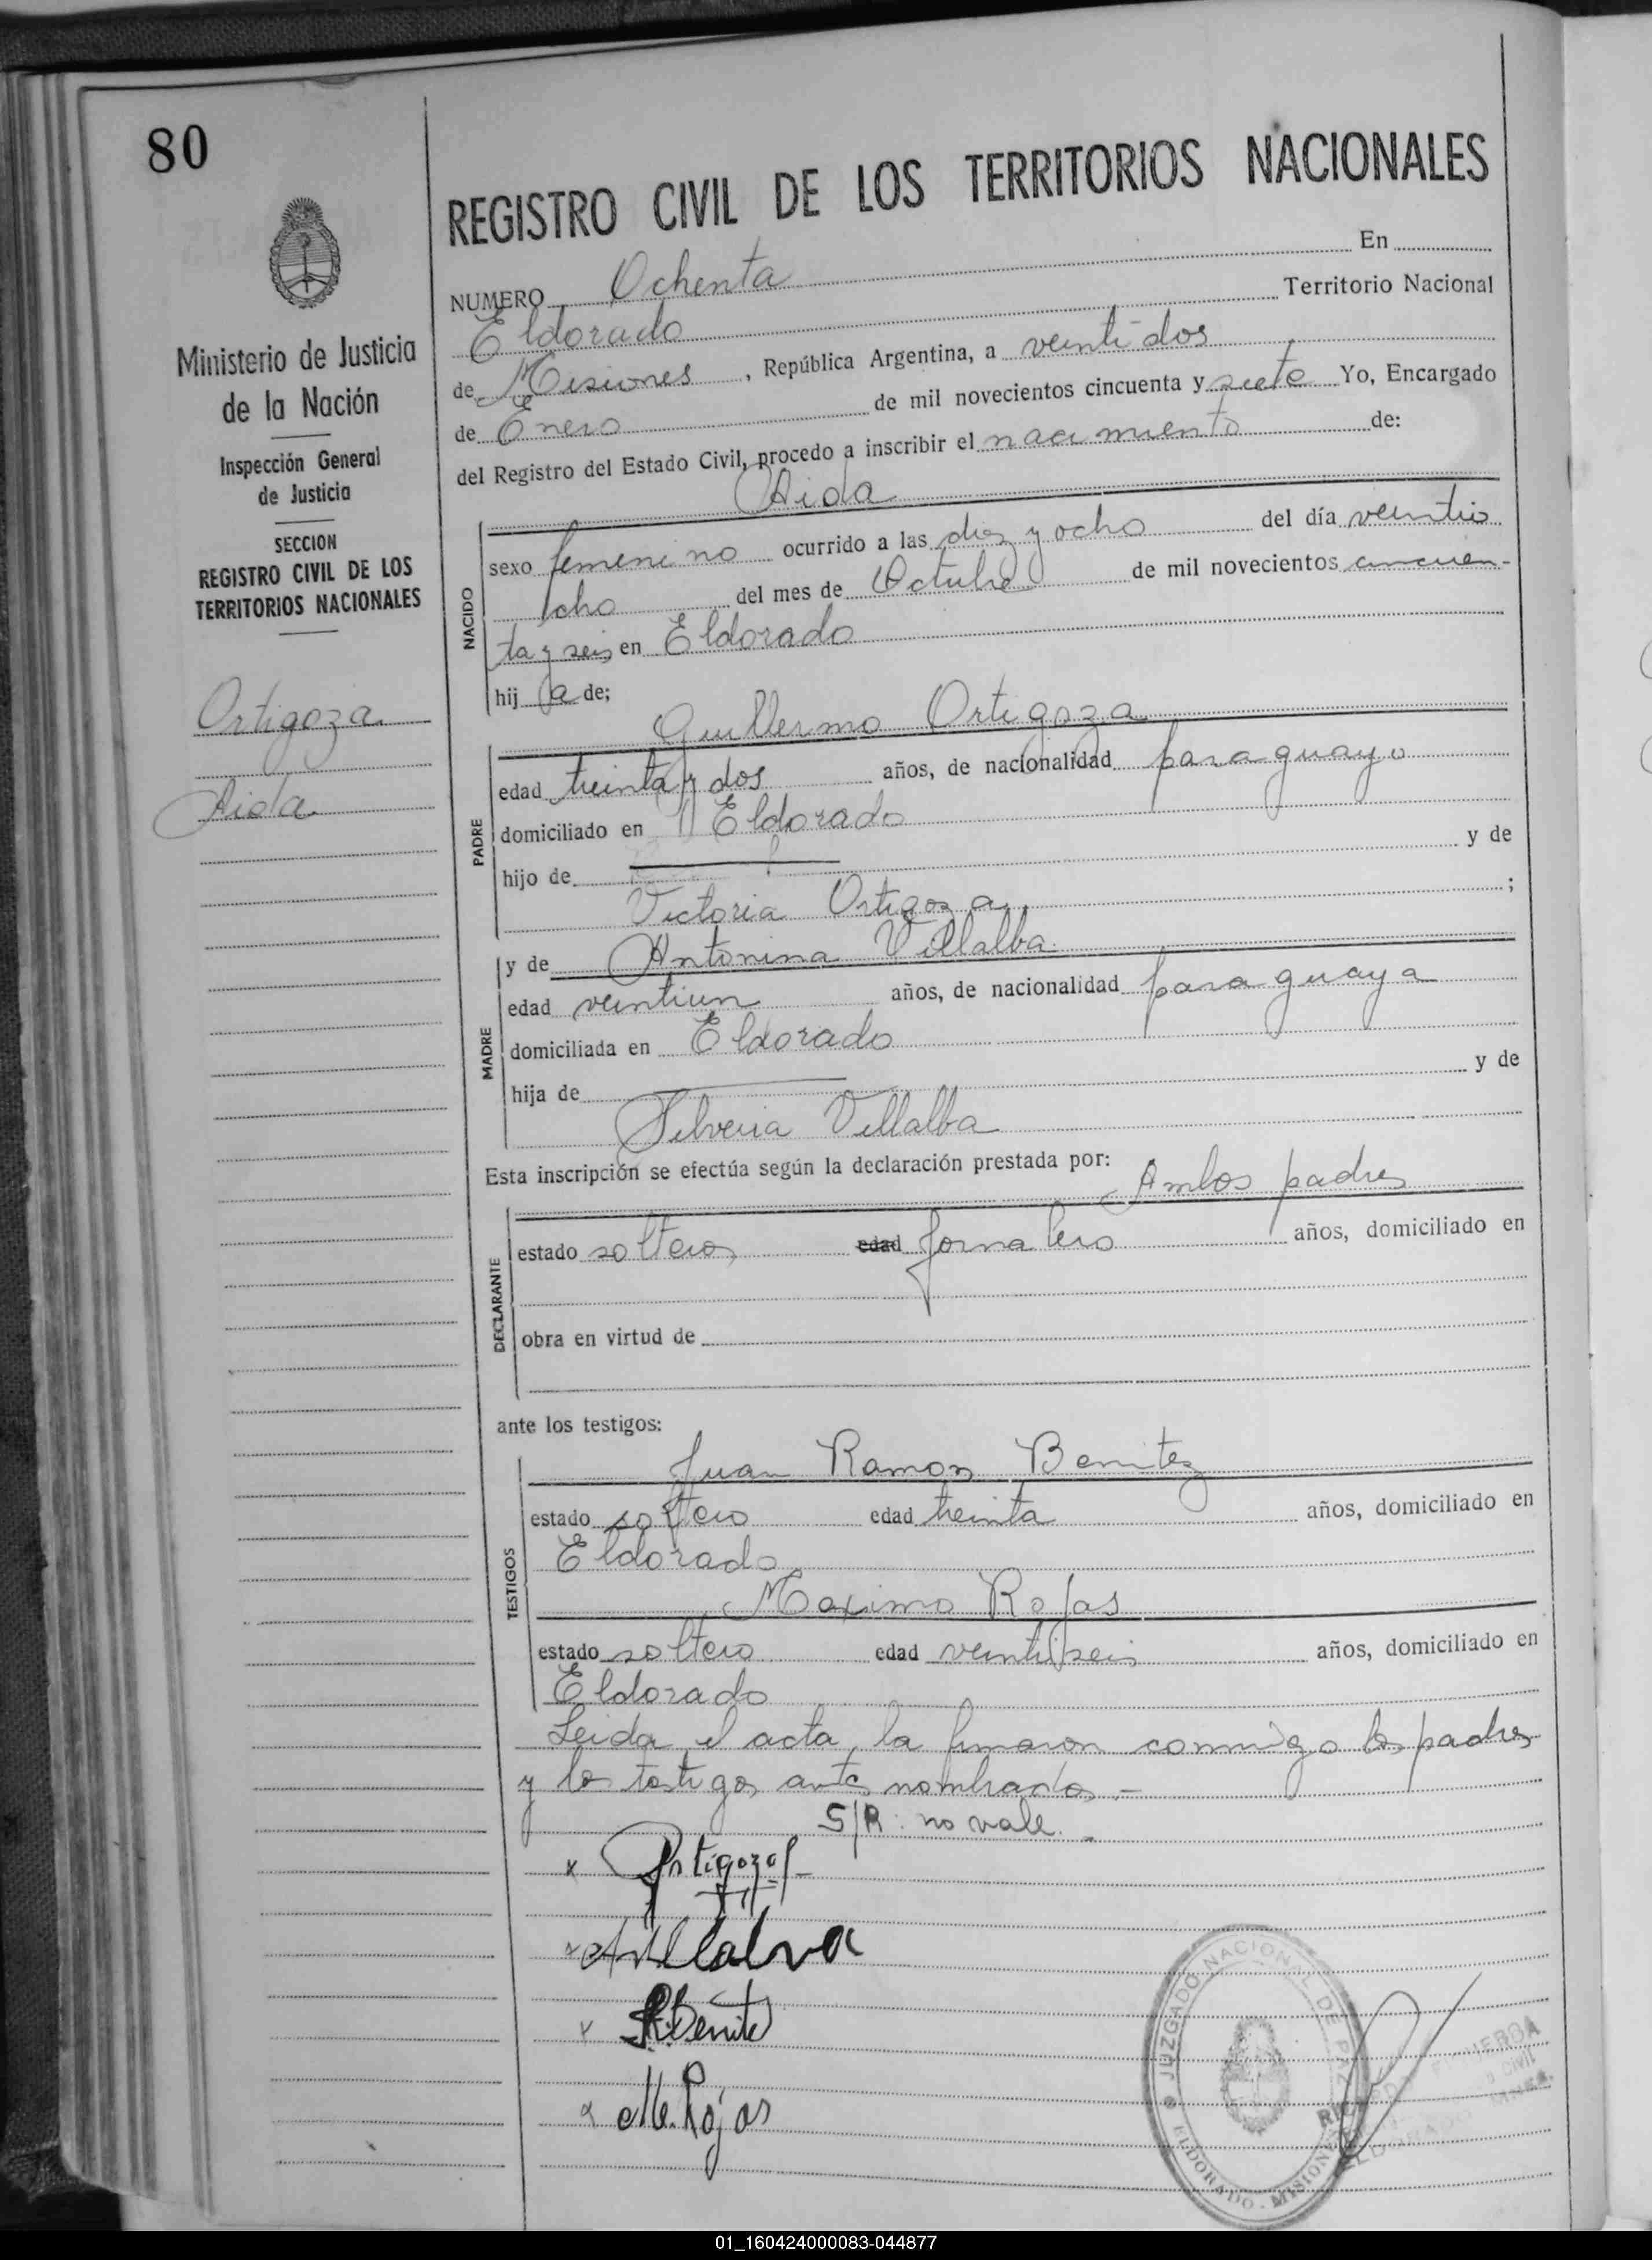 80
REGISTRO CIVIL DE LOS TERRITORIOS NACIONALES
NUMERO Ochenta En
Eldorado Territorio Nacional
de Misiones, República Argentina, a veintidos
de Enero de mil novecientos cincuenta y siete Yo, Encargado
del Registro del Estado Civil, procedo a inscribir el nacimiento de:
Aida
sexo femenino ocurrido a las diez y ocho del día veintio
cho del mes de Octubre de mil novecientos cincuen-
ta y seis en Eldorado
hij a de;
NACIDO
Guillermo Ortigoza
edad treinta y dos años, de nacionalidad paraguayo
domiciliado en Eldorado
hijo de y de
Victoria Ortigoza ;
PADRE
y de Antonina Villalba
edad veintiun años, de nacionalidad paraguaya
domiciliada en Eldorado
hija de y de
Silveria Villalba
MADRE
Esta inscripción se efectúa según la declaración prestada por:
Ambos padres
estado solteros edad Jornalero años, domiciliado en
obra en virtud de
DECLARANTE
ante los testigos:
Juan Ramon Benitez
estado soltero edad treinta años, domiciliado en
Eldorado
Maximo Rojas
estado soltero edad veintiseis años, domiciliado en
Eldorado
TESTIGOS
Leida el acta, la firmaron conmigo los padres
y los testigos antes nombrados.-
S/R: no vale.-
x Ortigoza
x AVillalva
x R. Benite
x M. Rojas
Ministerio de Justicia
de la Nación
Inspección General
de Justicia
SECCION
REGISTRO CIVIL DE LOS
TERRITORIOS NACIONALES
Ortigoza
Aida
JUZGADO NACIONAL DE PAZ
ELDORADO - MISIONES
01_160424000083-044877